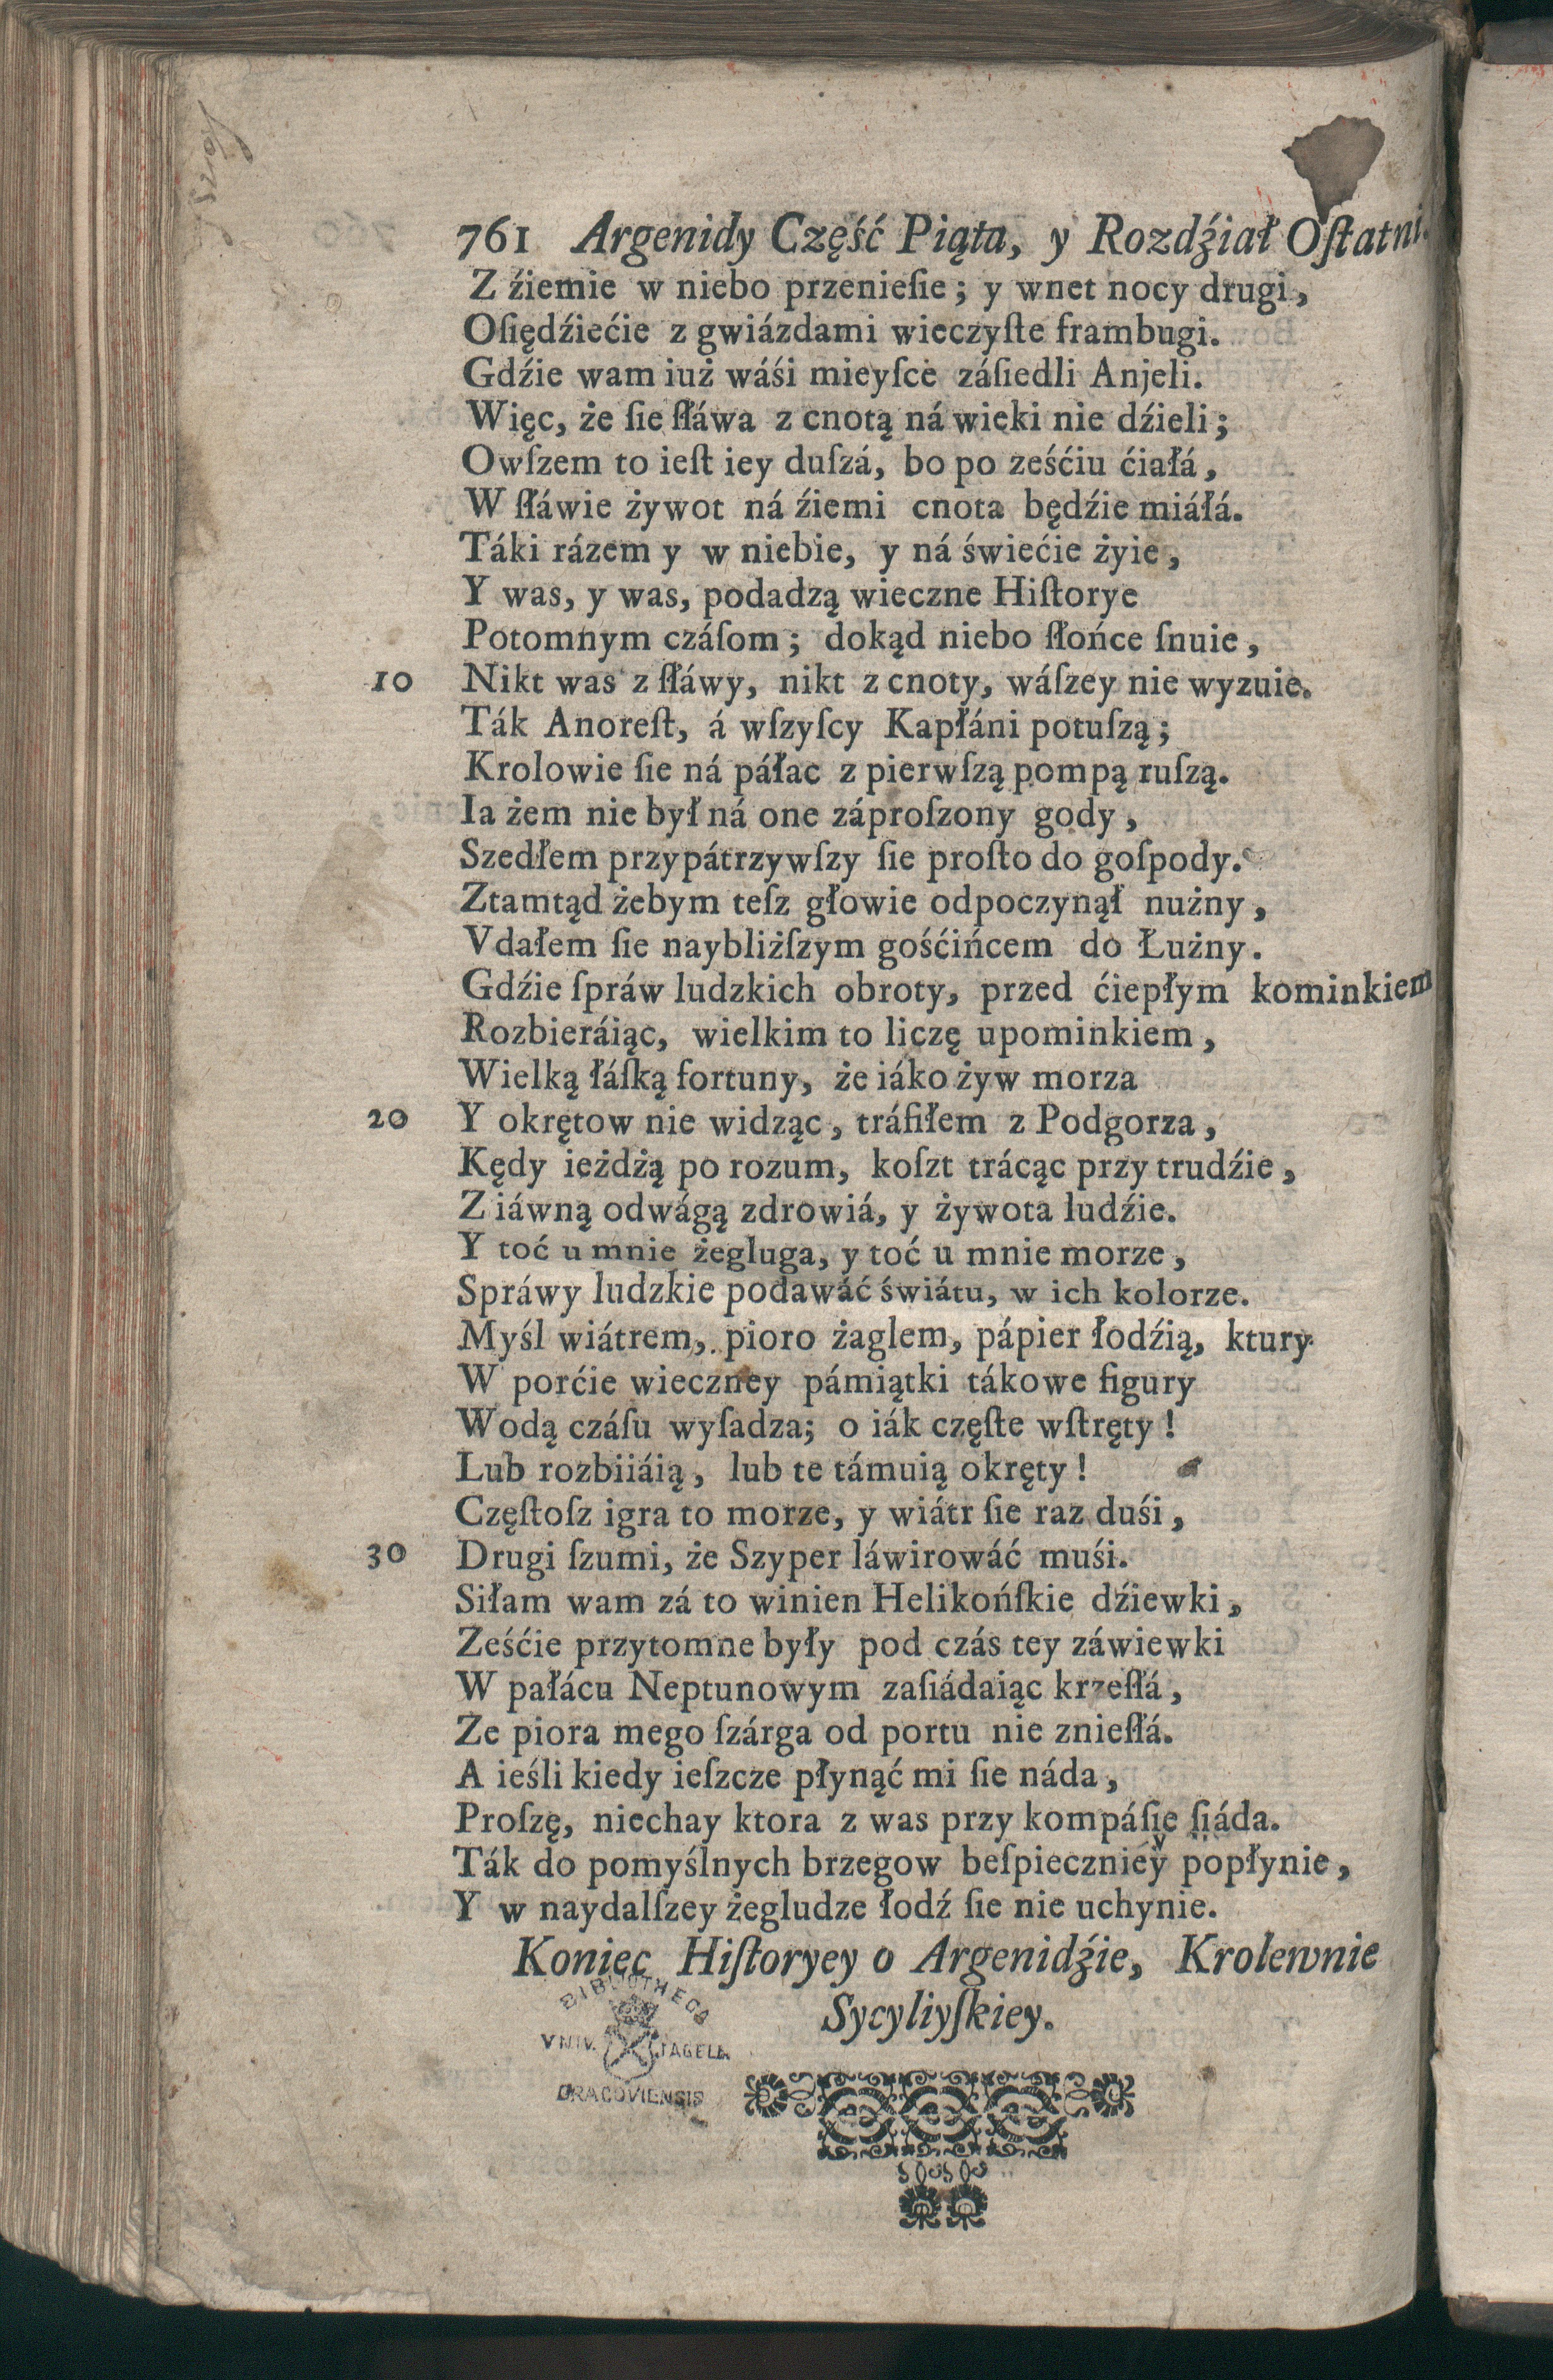 761 Argenidy Część Piąta, y Rozdźiał Oſtatni.
Z źiemie w niebo przenieſie; y wnet nocy drugi,
Oſiędźiećie z gwiázdami wieczyſte frambugi.
Gdźie wam iuż wáśi mieyſce záſiedli Anjeli.
Więc, że ſie ſłáwa z cnotą ná wieki nie dźieli;
Owſzem to ieſt iey duſzá, bo po ześćiu ćiałá,
W ſłáwie żywot ná źiemi cnota będźie miáłá.
Táki rázem y w niebie, y ná świećie żyie,
Y was, y was, podadzą wieczne Hiſtorye
Potomnym czáſom; dokąd niebo ſłońce ſnuie,
10 Nikt was z ſłáwy, nikt z cnoty, wáſzey nie wyzuie.
Ták Anoreſt, á wſzyſcy Kapłáni potuſzą;
Krolowie ſie ná páłac z pierwſzą pompą ruſzą.
Ia żem nie był ná one záproſzony gody,
Szedłem przypátrzywſzy ſie proſto do goſpody.
Ztamtąd żebym teſz głowie odpoczynął nużny,
Vdałem ſie naybliżſzym gośćińcem do Łużny.
Gdźie ſpráw ludzkich obroty, przed ćiepłym kominkiem
Rozbieráiąc, wielkim to liczę upominkiem,
Wielką łáſką fortuny, że iáko żyw morza
20 Y okrętow nie widząc, tráfiłem z Podgorza,
Kędy ieżdżą po rozum, koſzt trácąc przy trudźie,
Z iáwną odwágą zdrowiá, y żywota ludźie.
Y toć u mnie żegluga, y toć u mnie morze,
Spráwy ludzkie podawáć świátu, w ich kolorze.
Myśl wiátrem, pioro żaglem, pápier łodźią, ktury
W porćie wieczney pámiątki tákowe figury
Wodą czáſu wyſadza; o iák częſte wſtręty!
Lub rozbiiáią, lub te támuią okręty!
Częſtoſz igra to morze, y wiátr ſie raz duśi,
30 Drugi ſzumi, że Szyper láwirowáć muśi.
Siłam wam zá to winien Helikońſkie dźiewki,
Ześćie przytomne były pod czás tey záwiewki
W pałácu Neptunowym zaſiádaiąc krzeſłá,
Ze piora mego ſzárga od portu nie znieſłá.
A ieśli kiedy ieſzcze płynąć mi ſie náda,
Proſzę, niechay ktora z was przy kompáſie ſiáda.
Ták do pomyślnych brzegow beſpieczniéy popłynie,
Y w naydalſzey żegludze łodź ſie nie uchynie.
Koniec Hiſtoryey o Argenidźie, Krolewnie
Sycyliyſkiey.
BIBLIOTHECA
VNIV. JAGELL.
CRACOVIENSIS